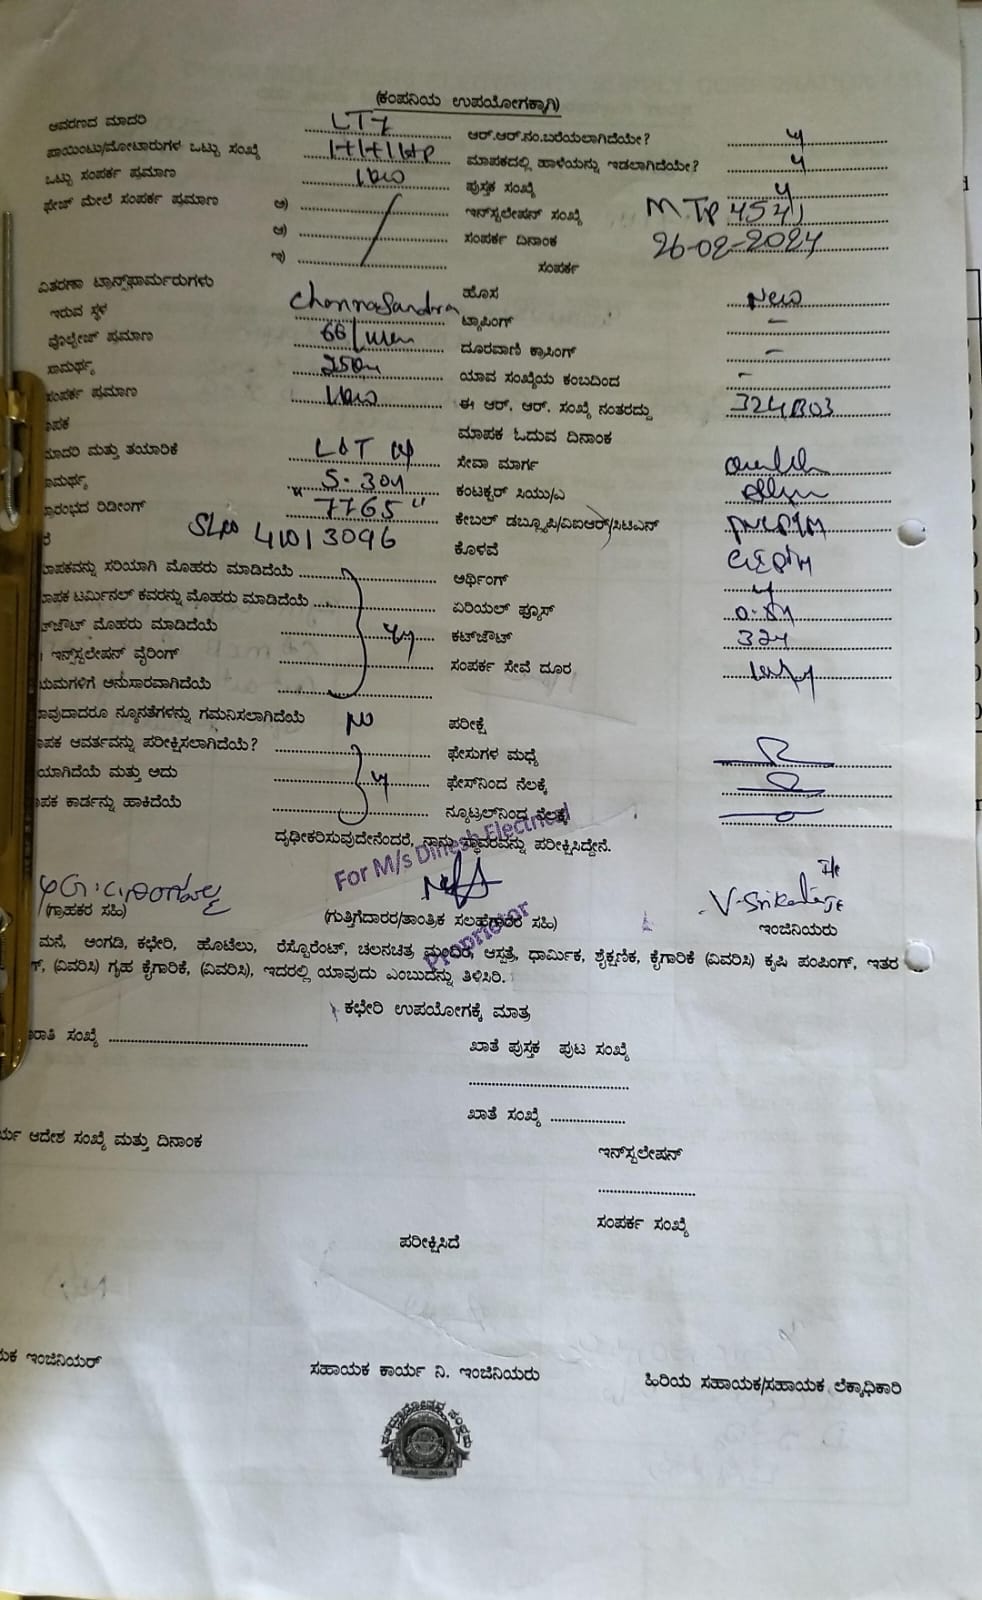 (ಕಂಪನಿಯ ಉಪಯೋಗಕ್ಕಾಗಿ)
ಆವರಣದ ಮಾದರಿ LT7 ಆರ್.ಆರ್.ನಂ.ಬರೆಯಲಾಗಿದೆಯೇ? y
ಪಾಯಿಂಟು/ಮೋಟಾರುಗಳ ಒಟ್ಟು ಸಂಖ್ಯೆ ಮಾಪಕದಲ್ಲಿ ಹಾಳೆಯನ್ನು ಇಡಲಾಗಿದೆಯೇ? y
ಒಟ್ಟು ಸಂಪರ್ಕ ಪ್ರಮಾಣ ಪುಸ್ತಕ ಸಂಖ್ಯೆ y
ಫೇಜ್ ಮೇಲೆ ಸಂಪರ್ಕ ಪ್ರಮಾಣ ಅ) ಇನ್‌ಸ್ಟಲೇಷನ್ ಸಂಖ್ಯೆ MTP 4541
ಆ) ಸಂಪರ್ಕ ದಿನಾಂಕ 26-02-2024
ಇ) ಸಂಪರ್ಕ
ವಿತರಣಾ ಟ್ರಾನ್ಸ್‌ಫಾರ್ಮರುಗಳು ಹೊಸ New
ಇರುವ ಸ್ಥಳ Channasandra ಟ್ಯಾಪಿಂಗ್ -
ವೋಲ್ಟೇಜ್ ಪ್ರಮಾಣ ದೂರವಾಣಿ ಕ್ರಾಸಿಂಗ್ -
ಸಾಮರ್ಥ್ಯ ಯಾವ ಸಂಖ್ಯೆಯ ಕಂಬದಿಂದ -
ಸಂಪರ್ಕ ಪ್ರಮಾಣ ಈ ಆರ್. ಆರ್. ಸಂಖ್ಯೆ ನಂತರದ್ದು 324B03
ಾಪಕ ಮಾಪಕ ಓದುವ ದಿನಾಂಕ
ಮಾದರಿ ಮತ್ತು ತಯಾರಿಕೆ ಸೇವಾ ಮಾರ್ಗ
ಾಮರ್ಥ್ಯ 5-30A ಕಂಟಕ್ಟರ್ ಸಿಯು/ಎ
್ರಾರಂಭದ ರಿಡೀಂಗ್ "7765" ಕೇಬಲ್ ಡಬ್ಲ್ಯೂಪಿ/ವಿಐಆರ್/ಸಿಟಿಎನ್
SLNO 41013096 ಕೊಳವೆ
ಾಪಕವನ್ನು ಸರಿಯಾಗಿ ಮೊಹರು ಮಾಡಿದೆಯೆ ಅರ್ಥಿಂಗ್ y
ಾಪಕ ಟರ್ಮಿನಲ್ ಕವರನ್ನು ಮೊಹರು ಮಾಡಿದೆಯೆ ಏರಿಯಲ್ ಫ್ಯೂಸ್
ಟ್‌ಜೌಟ್ ಮೊಹರು ಮಾಡಿದೆಯೆ ಕಟ್‌ಜೌಟ್ 32A
ಇನ್ಸ್‌ಟಲೇಷನ್ ವೈರಿಂಗ್ ಸಂಪರ್ಕ ಸೇವೆ ದೂರ
ಯಮಗಳಿಗೆ ಅನುಸಾರವಾಗಿದೆಯೆ
ಾವುದಾದರೂ ನ್ಯೂನತೆಗಳನ್ನು ಗಮನಿಸಲಾಗಿದೆಯೆ No ಪರೀಕ್ಷೆ
ಾಪಕ ಆವರ್ತವನ್ನು ಪರೀಕ್ಷಿಸಲಾಗಿದೆಯೆ? ಫೇಸುಗಳ ಮಧ್ಯೆ
ಯಾಗಿದೆಯೆ ಮತ್ತು ಅದು ಫೇಸ್‌ನಿಂದ ನೆಲಕ್ಕೆ
ಾಪಕ ಕಾರ್ಡನ್ನು ಹಾಕಿದೆಯೆ ನ್ಯೂಟ್ರಲ್‌ನಿಂದ ನೆಲಕ್ಕೆ
ದೃಢೀಕರಿಸುವುದೇನೆಂದರೆ, ನಾನು ಸ್ಥಾವರವನ್ನು ಪರೀಕ್ಷಿಸಿದ್ದೇನೆ.
For M/s Dinesh Electrical
Proprietor
V-Srikanta JE
(ಗ್ರಾಹಕರ ಸಹಿ) (ಗುತ್ತಿಗೆದಾರರ/ತಾಂತ್ರಿಕ ಸಲಹೆಗಾರರ ಸಹಿ) ಇಂಜಿನಿಯರು
ಮನೆ, ಅಂಗಡಿ, ಕಛೇರಿ, ಹೊಟೆಲು, ರೆಸ್ಟೋರೆಂಟ್, ಚಲನಚಿತ್ರ ಮಂದಿರ, ಆಸ್ಪತ್ರೆ, ಧಾರ್ಮಿಕ, ಶೈಕ್ಷಣಿಕ, ಕೈಗಾರಿಕೆ (ವಿವರಿಸಿ) ಕೃಷಿ ಪಂಪಿಂಗ್, ಇತರ
(ವಿವರಿಸಿ) ಗೃಹ ಕೈಗಾರಿಕೆ, (ವಿವರಿಸಿ), ಇದರಲ್ಲಿ ಯಾವುದು ಎಂಬುದನ್ನು ತಿಳಿಸಿರಿ.
ಕಛೇರಿ ಉಪಯೋಗಕ್ಕೆ ಮಾತ್ರ
ಾತಿ ಸಂಖ್ಯೆ ಖಾತೆ ಪುಸ್ತಕ ಪುಟ ಸಂಖ್ಯೆ
ಖಾತೆ ಸಂಖ್ಯೆ
ರ್ಯ ಆದೇಶ ಸಂಖ್ಯೆ ಮತ್ತು ದಿನಾಂಕ ಇನ್‌ಸ್ಟಲೇಷನ್
ಸಂಪರ್ಕ ಸಂಖ್ಯೆ
ಪರೀಕ್ಷಿಸಿದೆ
ಯಕ ಇಂಜಿನಿಯರ್ ಸಹಾಯಕ ಕಾರ್ಯ ನಿ. ಇಂಜಿನಿಯರು ಹಿರಿಯ ಸಹಾಯಕ/ಸಹಾಯಕ ಲೆಕ್ಕಾಧಿಕಾರಿ